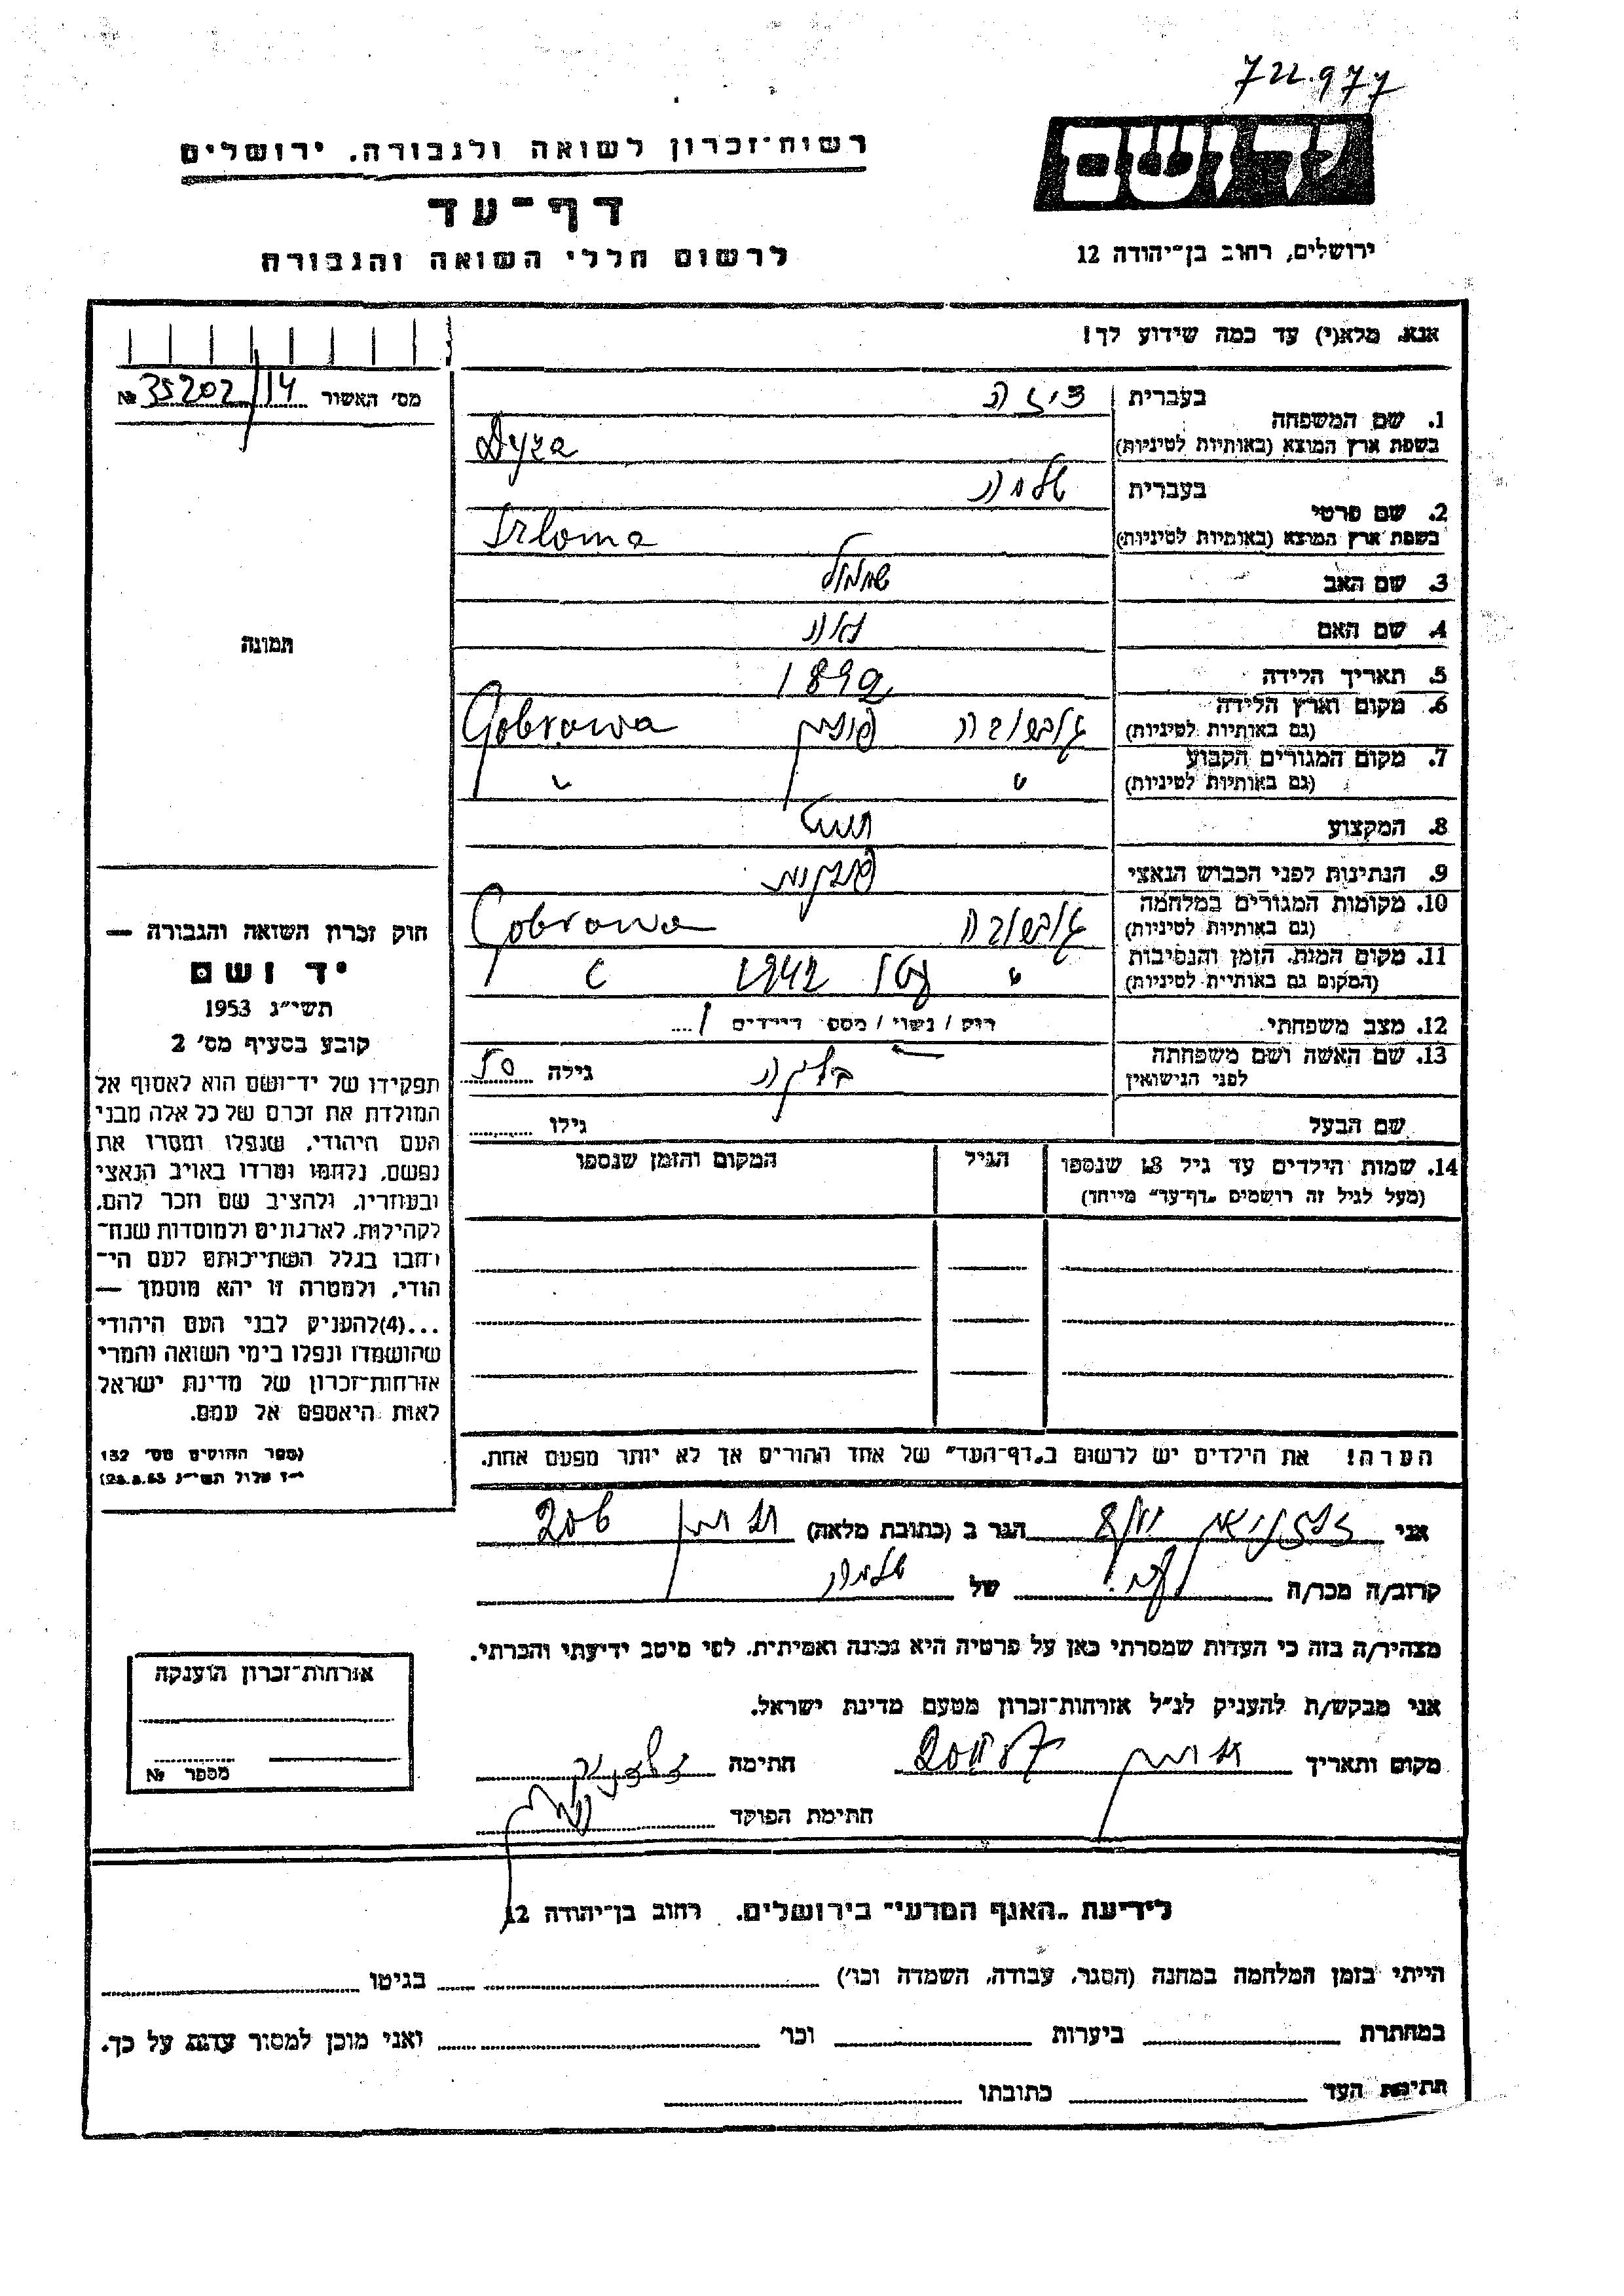 722.977
יד ושם
רשות־זכרון לשואה ולגבורה, ירושלים
דף־עד
לרשום חללי השואה והגבורה
ירושלים, רחוב בן־יהודה 12
אנא, מלא(י) עד כמה שידוע לך!
מס׳ האשור № 35202/14
1. שם המשפחה
בעברית
בשפת ארץ המוצא (באותיות לטיניות) Dyza
2. שם פרטי
בעברית שלמה
בשפת ארץ המוצא (באותיות לטיניות) Szloma
3. שם האב שמואל
4. שם האם
5. תאריך הלידה
6. מקום וארץ הלידה פולין
(גם באותיות לטיניות) Gobrowa
7. מקום המגורים הקבוע "
(גם באותיות לטיניות) "
8. המקצוע
9. הנתינות לפני הכבוש הנאצי פולנית
10. מקומות המגורים במלחמה
(גם באותיות לטיניות) Gobrowa
11. מקום המות, הזמן והנסיבות " 1942 "
(המקום גם באותיות לטיניות)
12. מצב משפחתי רוק / נשוי / מספר הילדים
13. שם האשה ושם משפחתה
לפני הנישואין גילה 50
שם הבעל גילו
14. שמות הילדים עד גיל 18 שנספו
(מעל לגיל זה רושמים „דף־עד״ מייחד)
הגיל
המקום והזמן שנספו
הערה! את הילדים יש לרשום ב„דף־העד״ של אחד ההורים אך לא יותר מפעם אחת.
תמונה
חוק זכרון השואה והגבורה —
יד ושם
תשי״ג 1953
קובע בסעיף מס׳ 2
תפקידו של יד־ושם הוא לאסוף אל
המולדת את זכרם של כל אלה מבני
העם היהודי, שנפלו ומסרו את
נפשם, נלחמו ומרדו באויב הנאצי
ובעוזריו, ולהציב שם וזכר להם,
לקהילות, לארגונים ולמוסדות שנח־
רבו בגלל השתייכותם לעם הי־
הודי, ולמטרה זו יהא מוסמך —
...(4) להעניק לבני העם היהודי
שהושמדו ונפלו בימי השואה והמרי
אזרחות־זכרון של מדינת ישראל
לאות היאספם אל עמם.
(ספר החוקים מס׳ 132
י״ז אלול תשי״ג 28.8.53)
אני הגר ב (כתובת מלאה) 206
קרוב/ה מכר/ה של שלמה
מצהיר/ה בזה כי העדות שמסרתי כאן על פרטיה היא נכונה ואמיתית, לפי מיטב ידיעתי והכרתי.
אני מבקש/ת להעניק לנ״ל אזרחות־זכרון מטעם מדינת ישראל.
מקום ותאריך חתימה
חתימת הפוקד
אזרחות־זכרון הוענקה
מספר №
לידיעת „האגף המדעי״ בירושלים, רחוב בן־יהודה 12
הייתי בזמן המלחמה במחנה (הסגר, עבודה, השמדה וכו׳) בגיטו
במחתרת ביערות וכו׳ ואני מוכן למסור עדות על כך.
חתימת העד כתובתו